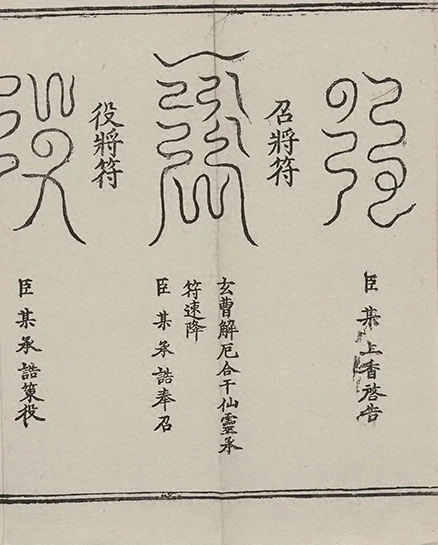 臣某上香啓告
召將符
玄曹解厄合干仙靈承
符速降
臣某承誥奉召
役將符
臣某承誥策役